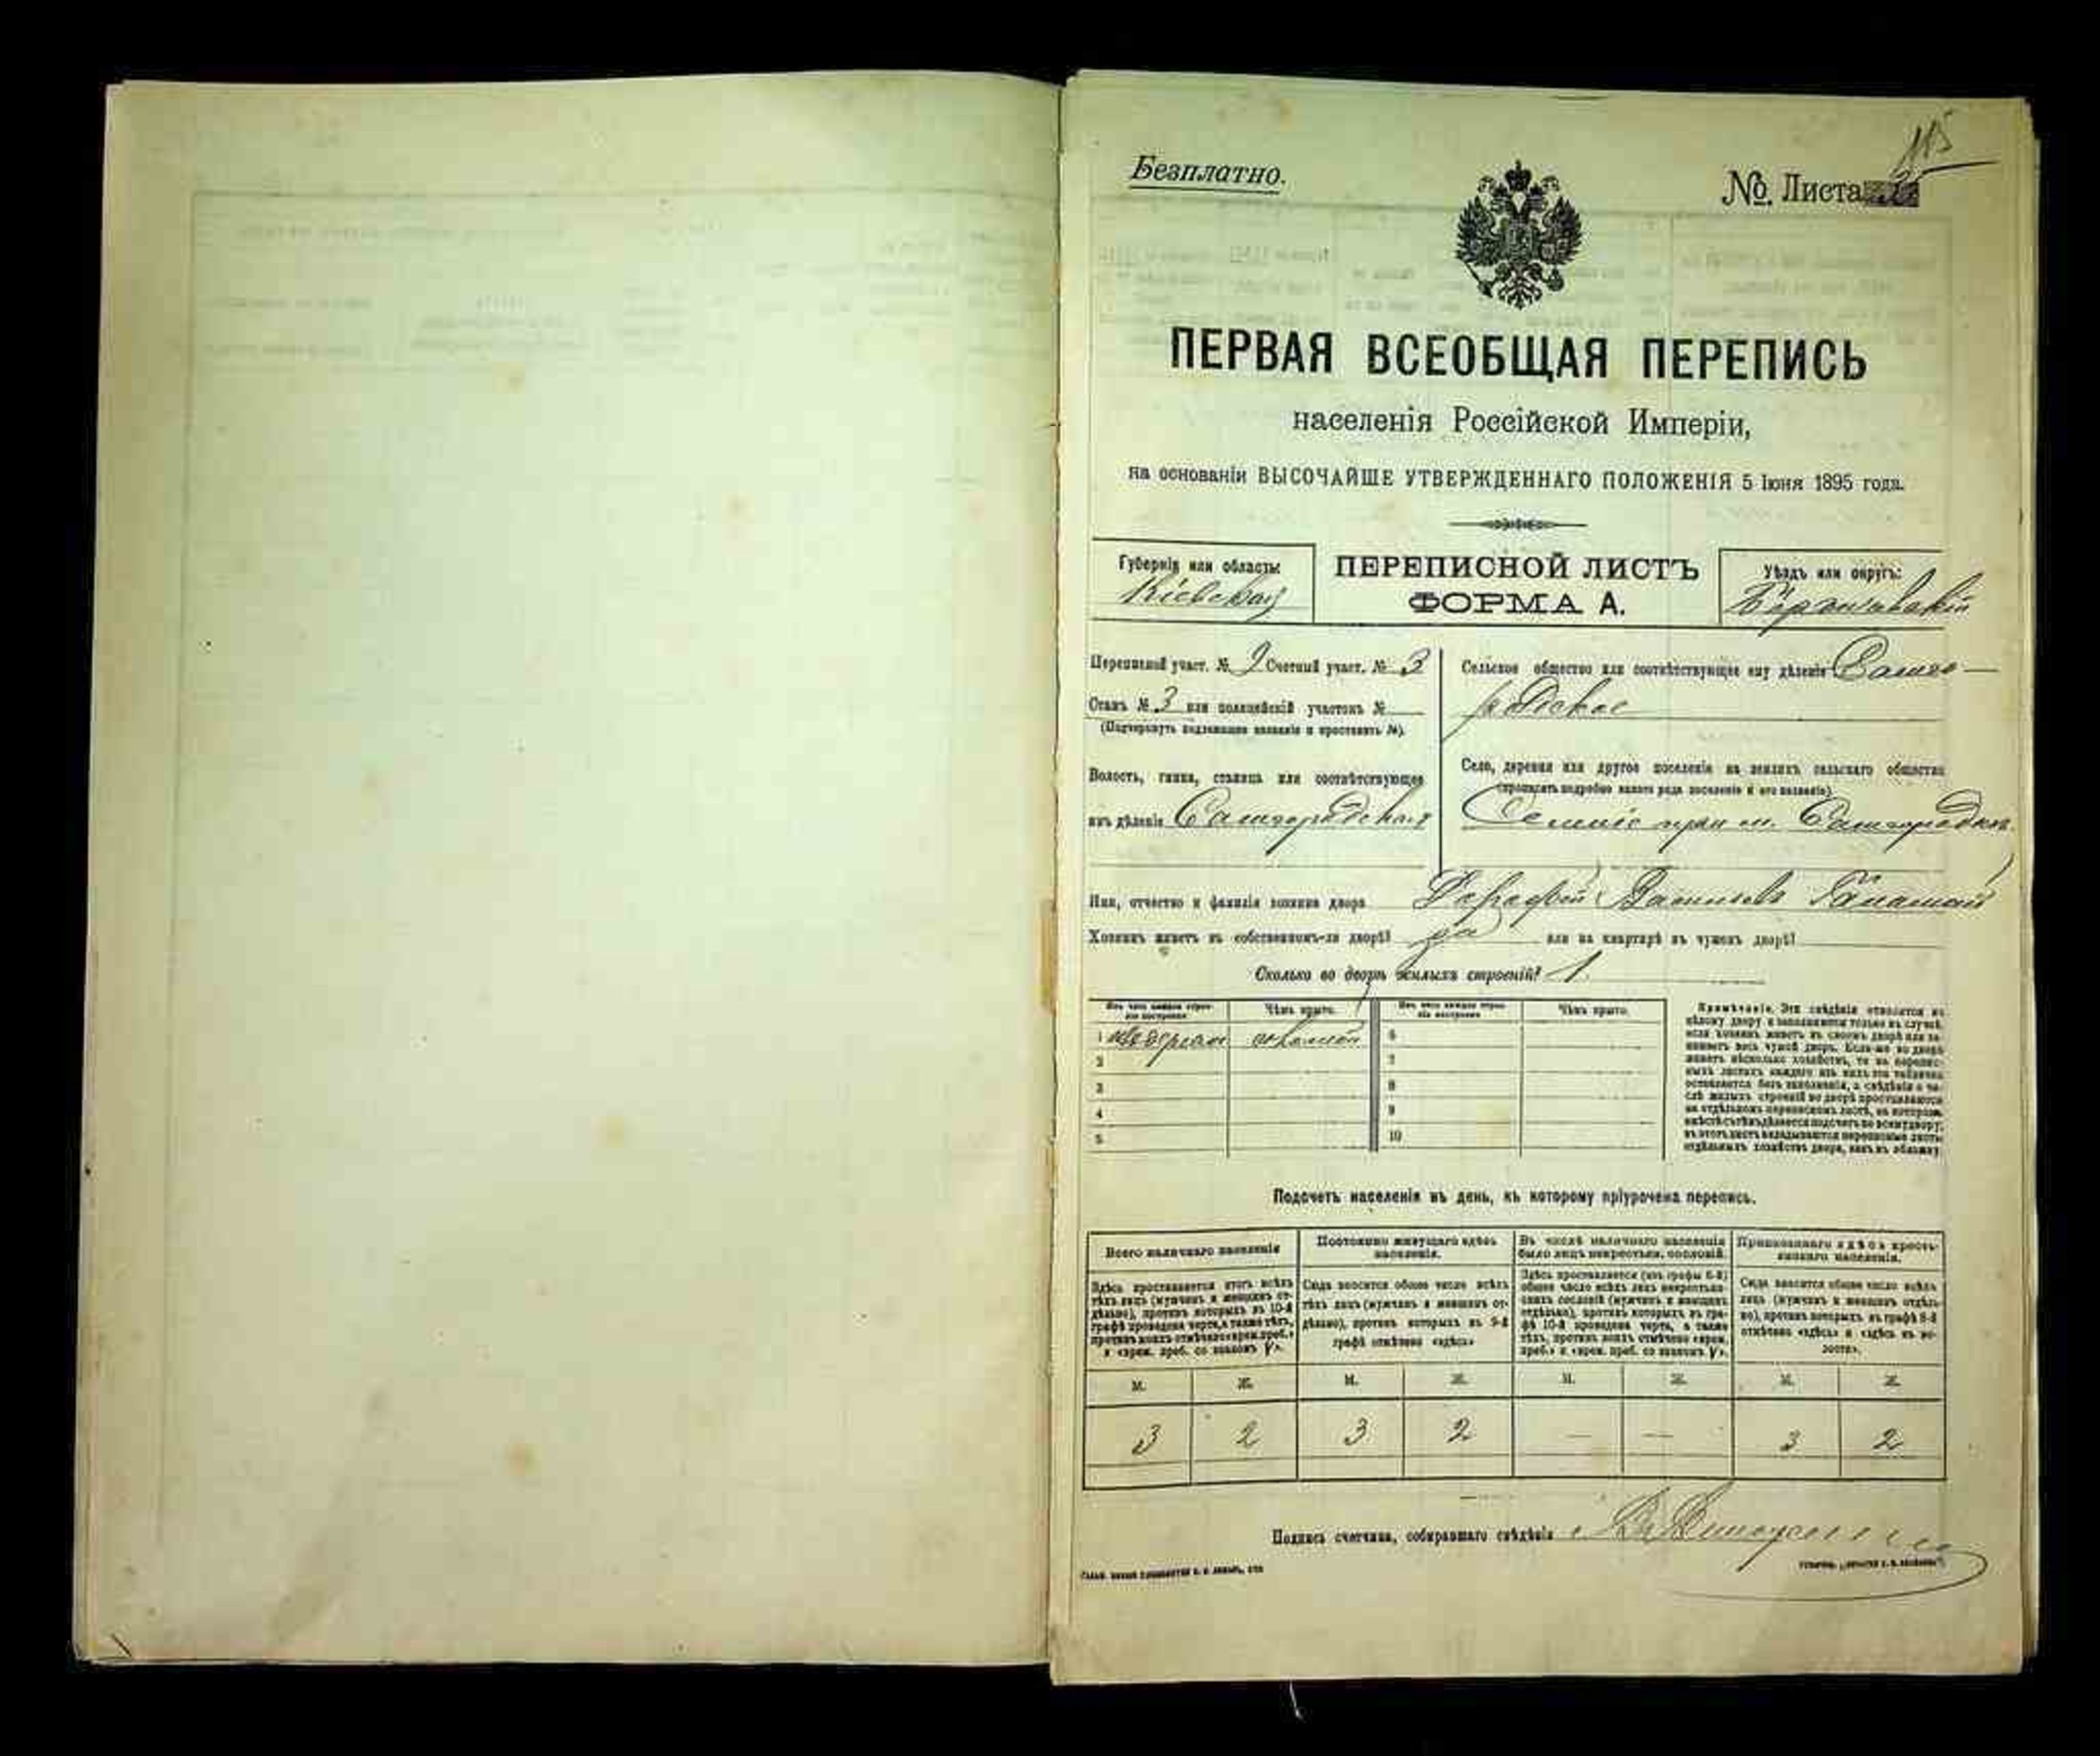 115
Безплатно.
№. Листа
ПЕРВАЯ ВСЕОБЩАЯ ПЕРЕПИСЬ
населенія Россійской Имперіи,
на основаніи ВЫСОЧАЙШЕ УТВЕРЖДЕННАГО ПОЛОЖЕНІЯ 5 Іюня 1895 года.
Губернія или область:
Кіевская
ПЕРЕПИСНОЙ ЛИСТЪ
ФОРМА А.
Уѣздъ или округъ:
Бердичевскій
Переписной участ. № 2 Счетный участ. № 3
Станъ № 3 или полицейскій участокъ №
(Подчеркнуть надлежащее названіе и проставить №).
Волость, гмина, станица или соотвѣтствующее
имъ дѣленіе Самгородская
Сельское общество или соотвѣтствующее ему дѣленіе Самго-
родское
Село, деревня или другое поселеніе на земляхъ сельскаго общества
(прописать подробно какого рода поселеніе и его названіе).
при м. Самгородкѣ
Имя, отчество и фамилія хозяина двора Васильевъ
Хозяинъ живетъ въ собственномъ-ли дворѣ? да или на квартирѣ въ чужомъ дворѣ?
Сколько во дворѣ жилыхъ строеній? 1.
Изъ чего каждое строеніе построено
Чѣмъ крыто.
Изъ чего каждое строеніе построено
Чѣмъ крыто.
1 изъ дерева соломой
2
3
4
5
6
7
8
9
10
Примѣчаніе. Эти свѣдѣнія относятся къ
цѣлому двору и заполняются только въ случаѣ,
если хозяинъ живетъ въ своемъ дворѣ или за-
нимаетъ весь чужой дворъ. Если-же во дворѣ
живетъ нѣсколько хозяйствъ, то на перепис-
ныхъ листахъ каждаго изъ нихъ эта табличка
оставляется безъ заполненія, а свѣдѣнія о чи-
слѣ жилыхъ строеній во дворѣ проставляются
на отдѣльномъ переписномъ листѣ, на которомъ
вмѣстѣ съ тѣмъ дѣлается подсчетъ по всему двору;
въ этотъ листъ вкладываются переписные листы
отдѣльныхъ хозяйствъ двора, какъ въ обложку.
Подсчетъ населенія въ день, къ которому пріурочена перепись.
Всего наличнаго населенія
Постоянно живущаго здѣсь
населенія.
Въ числѣ наличнаго населенія
было лицъ некрестьян. сословій.
Приписаннаго здѣсь кресть-
янскаго населенія.
Здѣсь проставляется итогъ всѣхъ
тѣхъ лицъ (мужчинъ и женщинъ от-
дѣльно), противъ которыхъ въ 10-й
графѣ проведена черта, а также тѣхъ,
противъ коихъ отмѣчено «врем. преб.»
и «врем. преб. со знакомъ V».
Сюда вносится общее число всѣхъ
тѣхъ лицъ (мужчинъ и женщинъ от-
дѣльно), противъ которыхъ въ 9-й
графѣ отмѣчено «здѣсь»
Здѣсь проставляется (изъ графы 6-й)
общее число всѣхъ лицъ некрестьян-
скихъ сословій (мужчинъ и женщинъ
отдѣльно), противъ которыхъ въ гра-
фѣ 10-й проведена черта, а также
тѣхъ, противъ коихъ отмѣчено «врем.
преб.» и «врем. преб. со знакомъ V».
Сюда вносится общее число всѣхъ
лицъ (мужчинъ и женщинъ отдѣль-
но), противъ которыхъ въ графѣ 8-й
отмѣчено «здѣсь» и «здѣсь въ во-
лости».
М. Ж. М. Ж. М. Ж. М. Ж.
3 2 3 2 — — 3 2
Подпись счетчика, собиравшаго свѣдѣнія